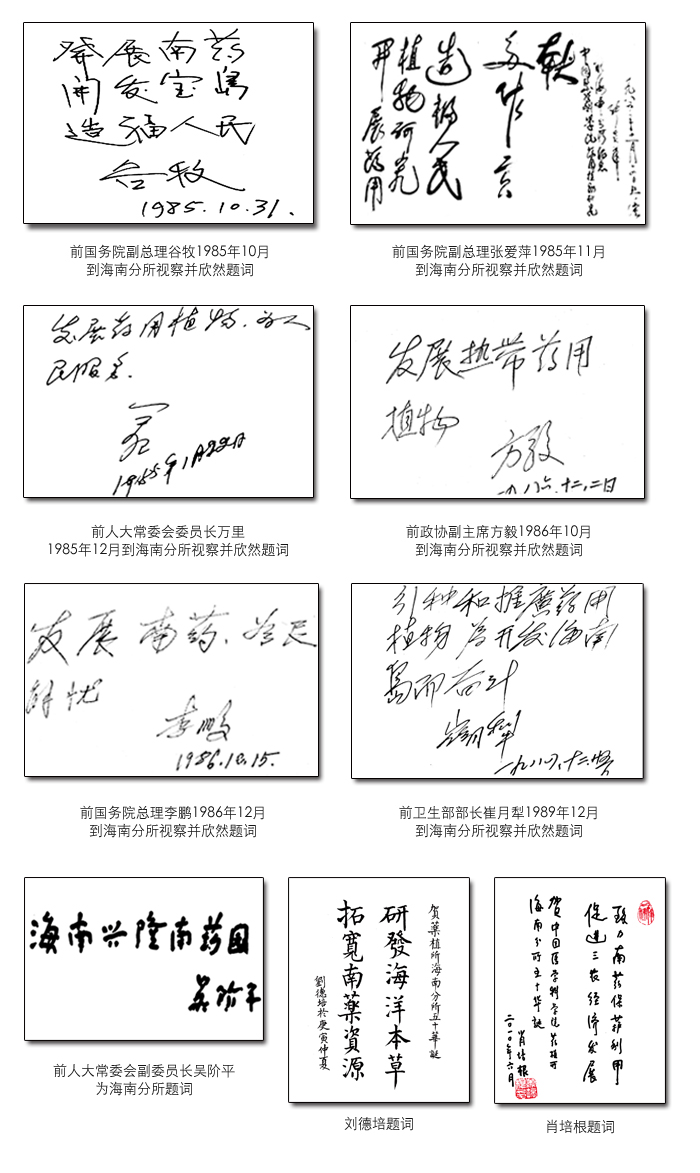 發展南药
開发宝島
造福人民
谷牧
1985.10.31.
献
造福人民
植物研究
开展药用
前国务院副总理谷牧1985年10月
到海南分所视察并欣然题词
前国务院副总理张爱萍1985年11月
到海南分所视察并欣然题词
发展药用植物.为人
民服务.
发展热带药用
植物
方毅
一九八六.十二.二日
前人大常委会委员长万里
1985年12月到海南分所视察并欣然题词
前政协副主席方毅1986年10月
到海南分所视察并欣然题词
发展南药、为民
解忧
李鹏
1986.10.15.
引种和推廣药用
植物为开发海南
岛而奋斗
崔月犁
前国务院总理李鹏1986年12月
到海南分所视察并欣然题词
前卫生部部长崔月犁1989年12月
到海南分所视察并欣然题词
海南兴隆南药园
吴阶平
賀藥植所海南分所五十華誕
研發海洋本草
拓寬南藥資源
劉德培於庚寅仲夏
致力南药保护利用
促进三农经济发展
贺中国医学科学院药植所
海南分所五十华诞
肖培根
二〇一〇年六月
前人大常委会副委员长吴阶平
为海南分所题词
刘德培题词
肖培根题词